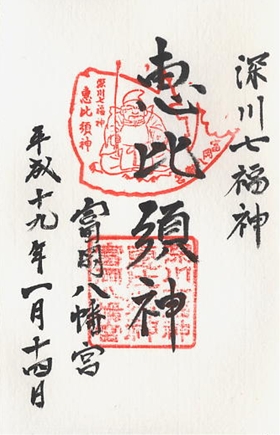 深川七福神
恵比須神
富岡八幡宮
平成十九年一月十四日
深川七福神
恵比須神
富岡